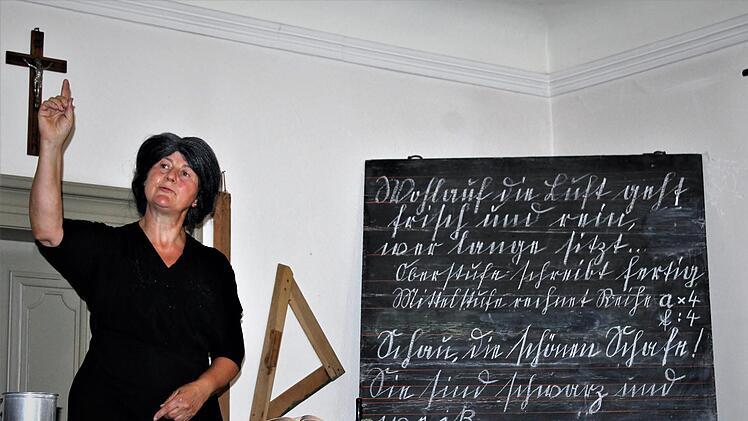 Wohlauf die Luft geht
frisch und rein,
wer lange sitzt..
Oberstufe schreibt fertig
Mittelstufe rechnet Reihe a x 4
b : 4
Schau, die schönen Schafe!
Sie sind schwarz und
weiß